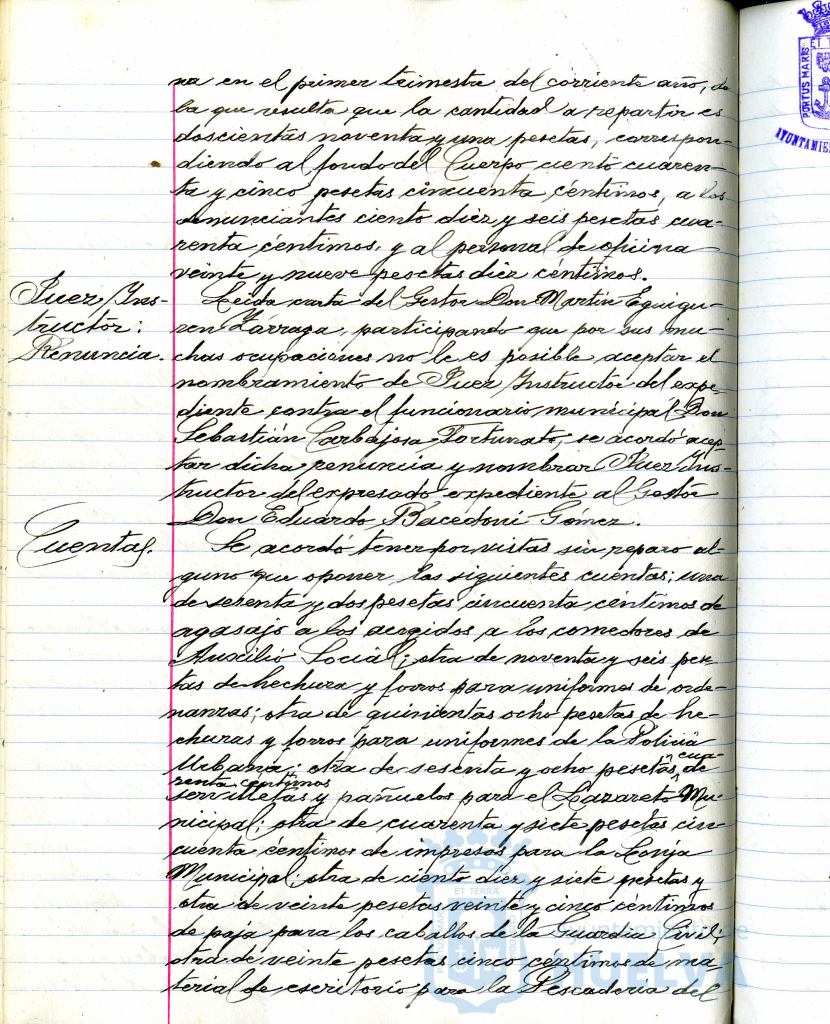 na en el primer trimestre del corriente año, de
la que resulta que la cantidad a repartir es
doscientas noventa y una pesetas, correspon-
diendo al fondo del Cuerpo ciento cuaren-
ta y cinco pesetas cincuenta céntimos, a los
denunciantes ciento diez y seis pesetas cua-
renta céntimos, y al personal de oficina
veinte y nueve pesetas diez céntimos.
Juez Ins-
tructor:
Renuncia.
Leida carta del Gestor Don Martín Eguigu-
ren Zárraga, participando que por sus mu-
chas ocupaciones no le es posible aceptar el
nombramiento de Juez Instructor del expe-
diente contra el funcionario municipal Don
Sebastián Carbajosa Fortunato, se acordó acep-
tar dicha renuncia y nombrar Juez Ins-
tructor del expresado expediente al Gestor
Don Eduardo Bacedoni Gómez.
Cuentas.
Se acordó tener por vistas sin reparo al-
guno que oponer, las siguientes cuentas: una
de setenta y dos pesetas cincuenta céntimos de
agasajo a los acogidos a los comedores de
Auxilio Social; otra de noventa y seis pese-
tas de hechura y forros para uniformes de orde-
nanzas; otra de quinientas ocho pesetas de he-
churas y forros para uniformes de la Policia
Urbana; otra de sesenta y ocho pesetas cua-
renta céntimos de
servilletas y pañuelos para el Lazareto Mu-
nicipal; otra de cuarenta y siete pesetas cin
cuenta céntimos de impresos para la Lonja
Municipal; otra de ciento diez y siete pesetas y
otra de veinte pesetas veinte y cinco céntimos
de paja para los caballos de la Guardia Civil;
otra de veinte pesetas cinco céntimos de ma-
terial de escritorio para la Pescaderia del
PORTUS MARIS
AYUNTAMIE
ET TERRAE
Ayuntamiento de
HUELVA